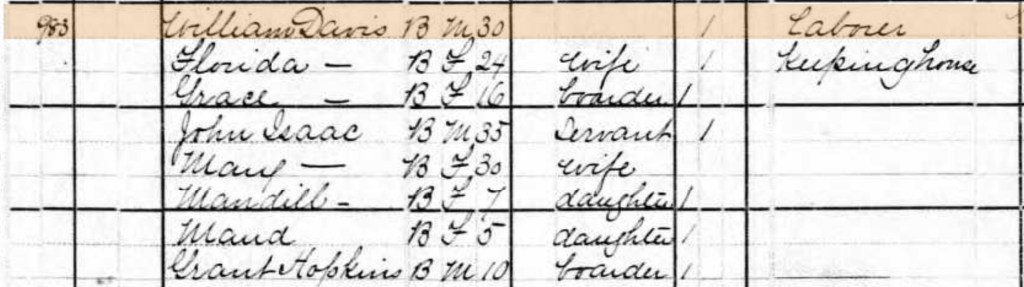 983 William Davis B M 30 1 Laborer
Florida — B F 24 wife 1 Keepinghouse
Grace — B F 16 boarder 1
John Isaac B M 35 Servant 1
Mary — B F 30 wife
Mandill - B F 7 daughter 1
Maud B F 5 daughter 1
Grant Hopkins B M 10 boarder 1